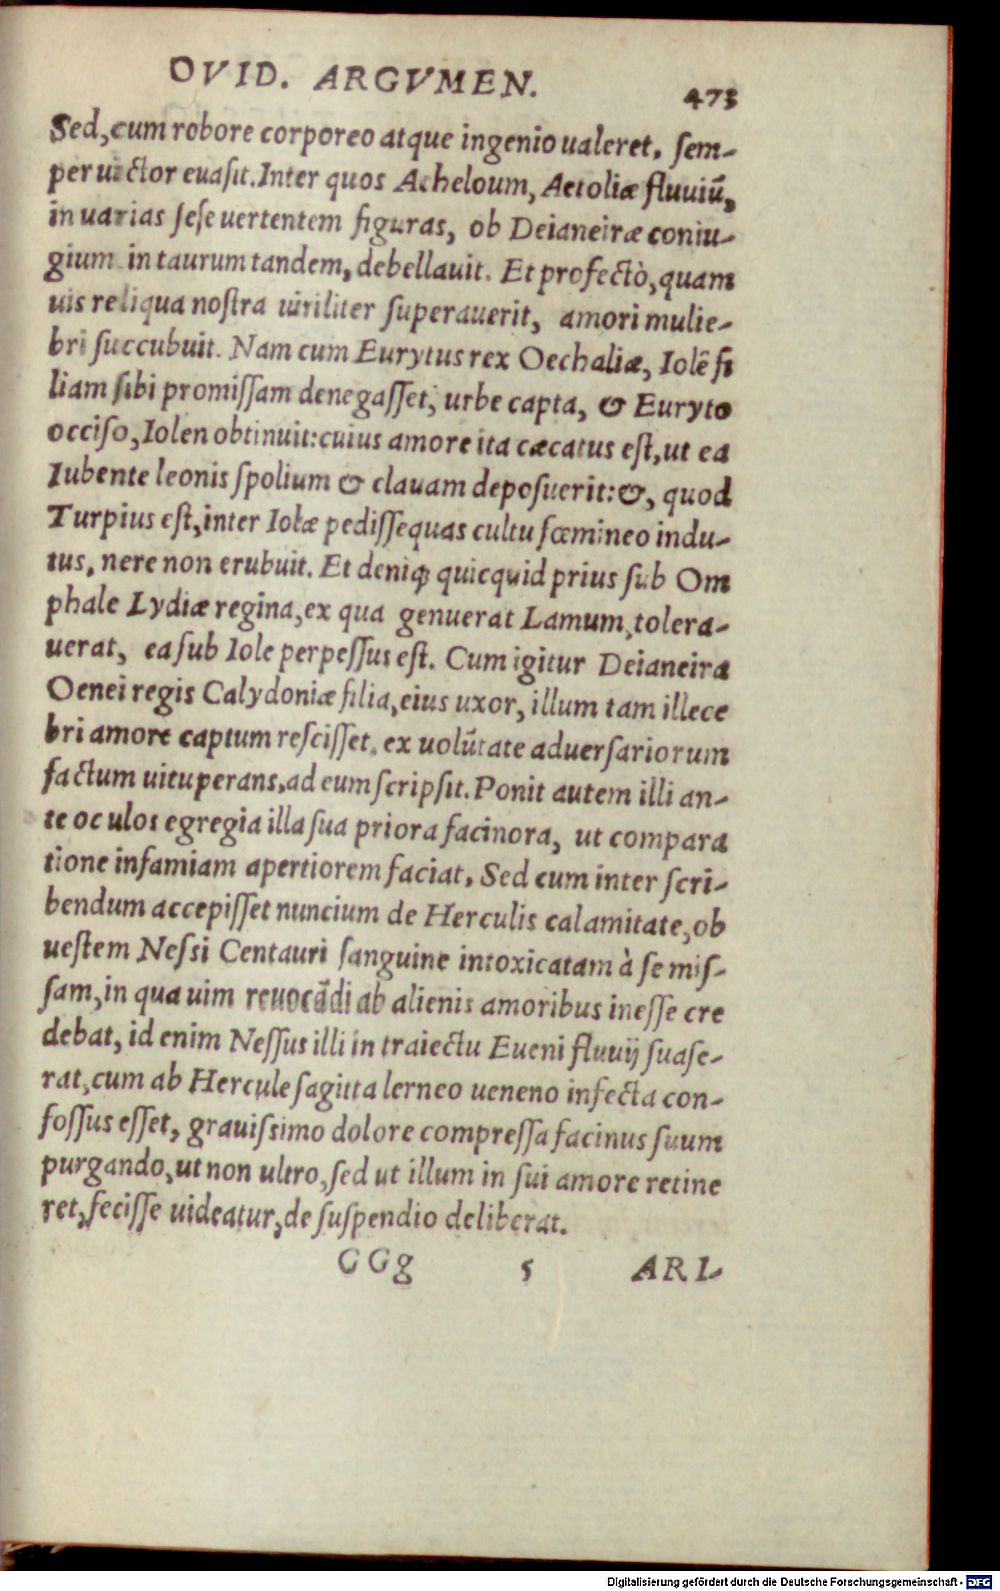 OVID. ARGVMEN. 473
Sed, cum robore corporeo atque ingenio ualeret, sem-
per uictor euasit. Inter quos Acheloum, Aetoliæ fluuiũ,
in uarias sese uertentem figuras, ob Deianeiræ coniu-
gium in taurum tandem, debellauit. Et profectò, quam
uis reliqua nostra uiriliter superauerit, amori mulie-
bri succubuit. Nam cum Eurytus rex Oechaliæ, Iolẽ fi
liam sibi promissam denegasset, urbe capta, & Euryto
occiso, Iolen obtinuit: cuius amore ita cæcatus est, ut ea
Iubente leonis spolium & clauam deposuerit: &, quod
Turpius est, inter Iolæ pedissequas cultu fœmineo indu-
tus, nere non erubuit. Et deniq; quicquid prius sub Om
phale Lydiæ regina, ex qua genuerat Lamum, tolera-
uerat, ea sub Iole perpessus est. Cum igitur Deianeira
Oenei regis Calydoniæ filia, eius uxor, illum tam illece
bri amore captum rescisset, ex uolũtate aduersariorum
factum uituperans, ad eum scripsit. Ponit autem illi an-
te oculos egregia illa sua priora facinora, ut compara
tione infamiam apertiorem faciat. Sed cum inter scri-
bendum accepisset nuncium de Herculis calamitate, ob
uestem Nessi Centauri sanguine intoxicatam à se mis-
sam, in qua uim reuocãdi ab alienis amoribus inesse cre
debat, id enim Nessus illi in traiectu Eueni fluuij suase-
rat, cum ab Hercule sagitta lerneo ueneno infecta con-
fossus esset, grauissimo dolore compressa facinus suum
purgando, ut non ultro, sed ut illum in sui amore retine
ret, fecisse uideatur, de suspendio deliberat.
GGg 5 ARI-
Digitalisierung gefördert durch die Deutsche Forschungsgemeinschaft - DFG